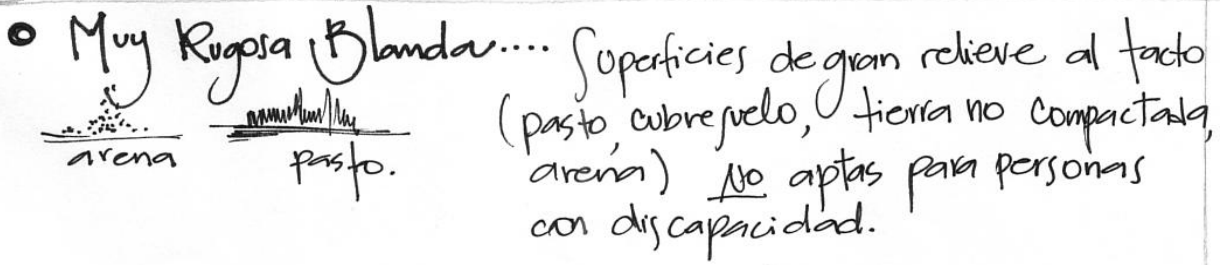 • Muy Rugosa Blanda....
arena
pasto.
Superficies de gran relieve al tacto
(pasto, cubresuelo, tierra no compactada,
arena) No aptas para personas
con discapacidad.